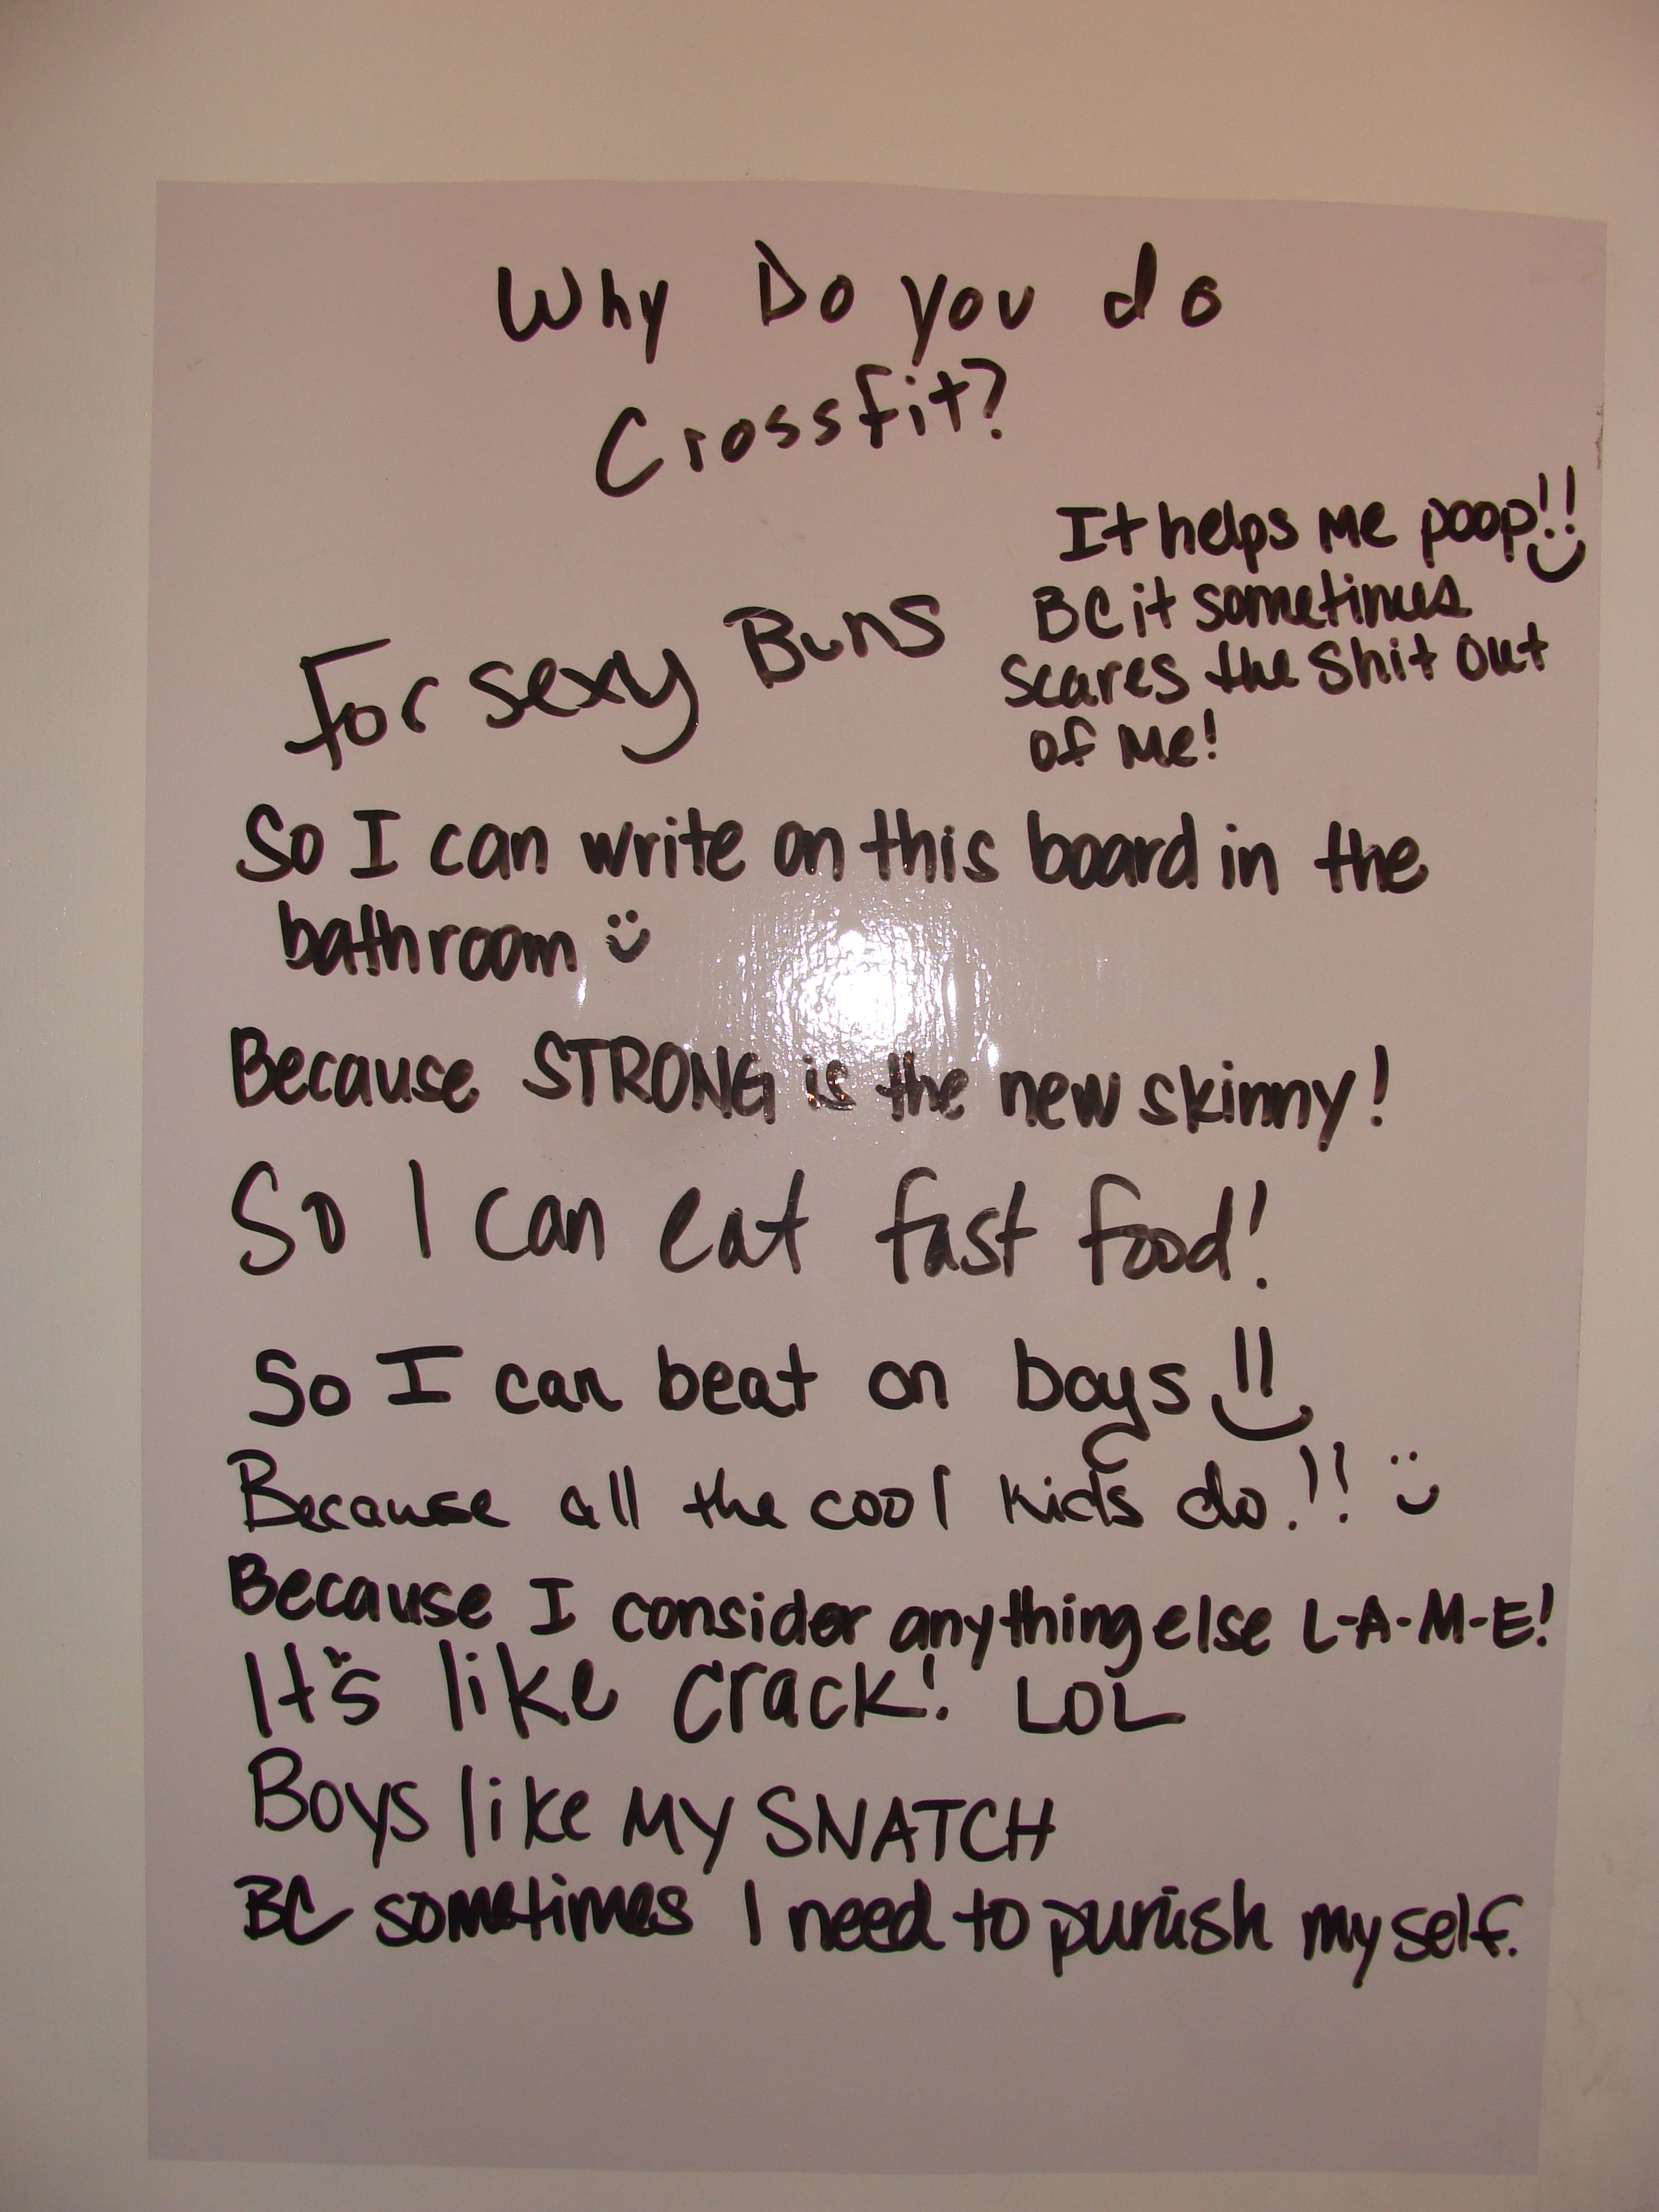 Why Do you do
Crossfit?
It helps me poop!!
BC it sometimes
scares the shit out
of me!
For sexy Buns
So I can write on this board in the
bathroom
Because STRONG is the new skinny!
So I can eat fast food!
So I can beat on boys!!
Because all the cool kids do!!
Because I consider anything else L-A-M-E!
It's like crack! LOL
Boys like MY SNATCH
BC sometimes I need to punish myself.